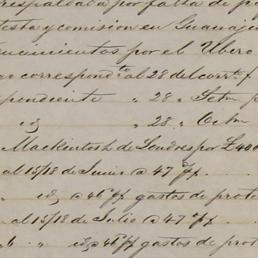 respaldaba por falta de pro
testa y comision en Guanaju
encimientos por el Ubero
go correspond.te al 28 del corr.te f
pondiente " 28 " Setm p
id " 28 " Octm
Mackintosh de Londres por £ 400
al 15/18 de Junio @ 47
id @ 46 gastos de prote
al 15/18 de Julio @ 47
" id @ 46 gastos de prot